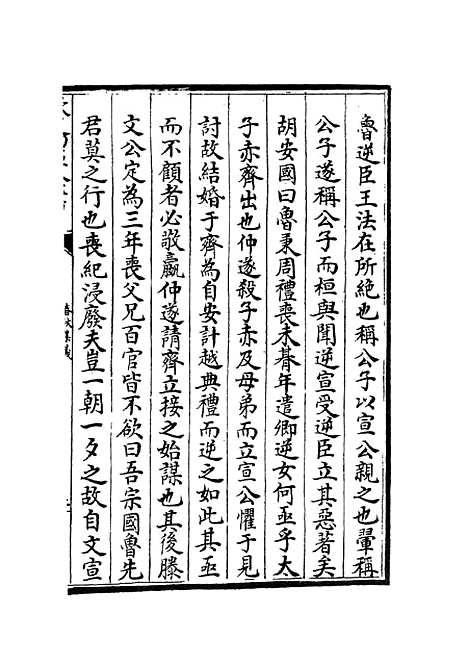 魯逆臣王法在所絶也稱公子以宣公親之也翬稱
公子遂稱公子而桓與聞逆宣受逆臣立其惡著矣
胡安國曰魯秉周禮喪未朞年遣卿逆女何亟乎太
子赤齊出也仲遂殺子赤及母弟而立宣公懼于見
討故結婚于齊為自安計越典禮而逆之如此其亟
而不顧者必敬嬴仲遂請齊立接之始謀也其後滕
文公定為三年喪父兄百官皆不欲曰吾宗國魯先
君莫之行也喪紀浸廢夫豈一朝一夕之故自文宣
春秋集義